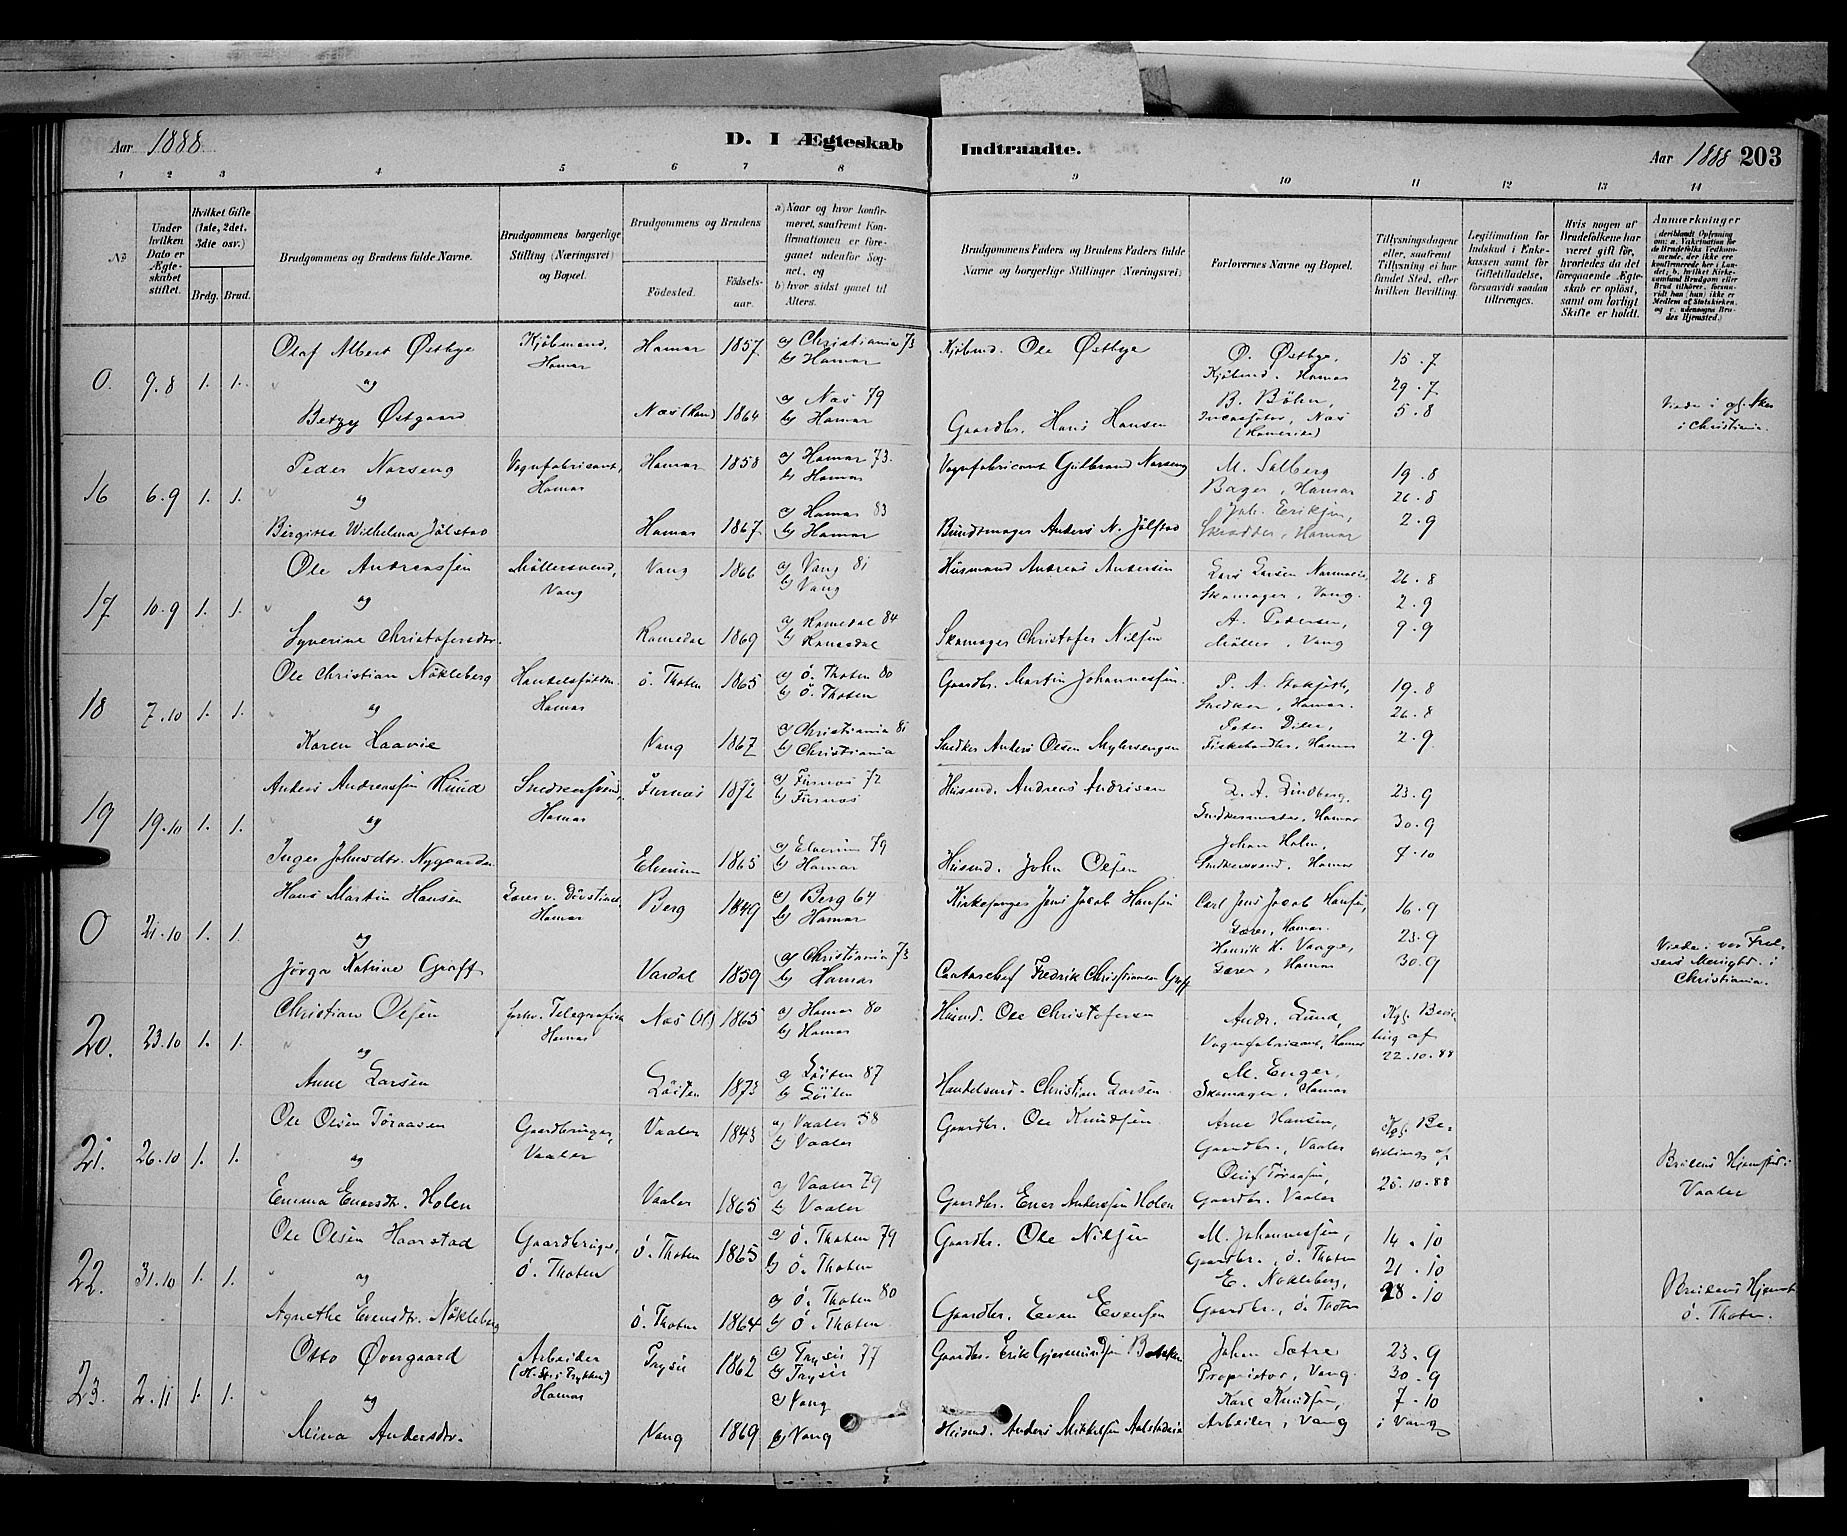 Aar 1888 D. I Ægteskab Indtraadte. Aar 1888 203
1 2 3 4 5 6 7 8 9 10 11 12 13 14
No
Under hvilken Dato er Ægteskabet stiftet.
Hvilket Gifte (1ste, 2det, 3die osv.)
Brdg. Brud.
Brudgommens og Brudens fulde Navne.
Brudgommens borgerlige Stilling (Næringsvei) og Bopæl.
Brudgommens og Brudens
Fødested. Fødselsaar.
a) Naar og hvor konfirmeret, saafremt Konfirmationen er foregaaet udenfor Sognet, og
b) hvor sidst gaaet til Alters.
Brudgommens Faders og Brudens Faders fulde Navne og borgerlige Stillinger (Næringsvei)
Forlovernes Navne og Bopæl.
Tillysningsdagene eller, saafremt Tillysning ei har fundet Sted, efter hvilken Bevilling.
Legitimation for Indskud i Enkekassen samt for Giftetilladelse, forsaavidt saadan tiltrænges.
Hvis nogen af Brudefolkene har været gift før, hvorledes da det foregaaende Ægteskab er opløst, samt om lovligt Skifte er holdt.
Anmærkninger (deriblandt Oplysning om: a. Vakcination for de Brudefolks Vedkommende, der ikke ere konfirmerede her i Landet; b. hvilket Kirkesamfund Brudgom eller Brud tilhører, forsaavidt han (hun) ikke er Medlem af Statskirken, og c. udensogns Brudes Hjemsted.)
0. 9.8 1. 1.
Olaf Albert Østbye Kjøbmand, Hamar Hamar 1857 a) Christiania 73 b) Hamar Kjøbmd. Ole Østbye O. Østbye, Kjøbmd. Hamar 15.7 29.7
og
Betzy Østgaard Næs (Rom) 1864 a) Næs 79 b) Hamar Gaardbr. Hans Hansen B. Bøhn, Næs (Romerike) 5.8 Viede i i Christiania.
16 6.9 1. 1.
Peder Narseng Vognfabricant, Hamar Hamar 1858 a) Hamar 73. b) Hamar Vognfabricant Gulbrand Narseng M. Salberg Bager, Hamar 19.8 26.8
og
Birgitte Wilhelma Jølstad Hamar 1867 a) Hamar 83 b) Hamar Bundtmager Anders N. Jølstad Joh. Eriksen, Skrædder, Hamar 2.9
17 10.9 1. 1.
Ole Andreassen Møllersvend, Vang Vang 1866 a) Vang 81 b) Vang Husmand Andreas Andersen Lars Larsen Skomager, Vang. 26.8 2.9
og
Syverine Christofersdtr. Romedal 1869 a) Romedal 84 b) Romedal Skomager Christofer Nilsen A. Pedersen, Møller, Vang 9.9
18 7.10 1. 1.
Ole Christian Nøkleberg Hamar Ø. Thoten 1865 a) Ø. Thoten 80 b) Ø. Thoten Gaardbr. Martin Johannessen. P. A. Snedker, Hamar. 19.8 26.8
og
Karen Haavie Vang 1867 a) Christiania 81 b) Christiania Snedker Anders Olsen Peter Fiskehandler, Hamar 2.9
19 19.10 1. 1.
Anders Andreassen Ruud Snedkersvend, Hamar Furnes 1872 a) Furnes 72 b) Furnes Husmd. Andreas Andersen L. A. Lindberg, Snedkermester, Hamar 23.9 30.9
og
Inger Johnsdtr. Nygaarden Elverum 1865 a) Elverum 79 b) Hamar Husmd. John Olsen Johan Holm, Snedkersvend, Hamar 7.10
0 21.10 1. 1.
Hans Martin Hansen Lærer v. Døvstinst. Hamar Berg 1849 a) Berg 64 b) Hamar Kirkesanger Jens Jacob Hansen Carl Jens Jacob Hansen, Lærer, Hamar. 16.9 23.9
og
Jørga Katrine Graff Vardal 1859 a) Christiania 73 b) Hamar Fredrik Christiansen Graff Henrik K. Vaage, Lærer, Hamar 30.9 Viede i vor Frelsers Menighd. i Christiania.
20. 23.10 1. 1.
Christian Olsen forhv. Telegrafist Hamar Næs (H) 1865 a) Hamar 80 b) Hamar Husmd. Ole Christofersen Andr. Lund, Vognfabricant, Hamar Kgl. Bevilling af 22.10.88
og
Anne Larsen Løiten 1873 a) Løiten 87 b) Løiten Handelsmd. Christian Larsen M. Enger, Skomager, Hamar
21. 26.10 1. 1.
Ole Olsen Toraasen Gaardbruger, Vaaler Vaaler 1843 a) Vaaler 58 b) Vaaler Gaardbr. Ole Knudsen Arne Hansen, Gaardbr., Vaaler Kgl. Bevilling af 25.10.88
og
Emma Enersdtr. Holen Vaaler 1865 a) Vaaler 79 b) Vaaler Gaardbr. Ener Anderssen Holen Oluf Toraasen, Gaardbr. Vaaler Brudens Hjemsted: Vaaler
22. 31.10 1. 1.
Ole Olsen Haarstad Gaardbruger, Ø. Thoten Ø. Thoten 1865 a) Ø. Thoten 79 b) Ø. Thoten Gaardbr. Ole Nilsen M. Johannessen, Gaardbr., Ø. Thoten 14.10 21.10
og
Agnethe Evensdtr. Nøkleberg Ø. Thoten 1864 a) Ø. Thoten 80 b) Ø. Thoten Gaardbr. Even Evensen E. Nøkleberg, Gaardbr., Ø. Thoten 28.10 Brudens Hjemst. Ø. Thoten.
23. 2.11 1. 1.
Otto Øvergaard Arbeider Hamar Trysil 1862 a) Trysil 77 b) Trysil Gaardbr. Erik Gjermundsen Johan Sætre Proprietær, Vang. 23.9 30.9
og
Mina Andersdtr. Vang 1869 a) Vang b) Vang Husmd. Anders Mikkelsen Karl Knudsen, Arbeider, Vang 7.10 i Vang